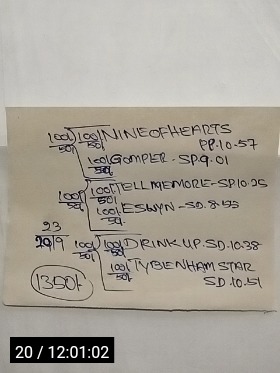 100/50/ 100/50/ NINE OF HEARTS
PP.10.57
100/50/ GOMPLER - SP.9.01
100/50/ 100/50/ TELL ME MORE - SP.10.25
100/50/ ESWYN - SD.8.55
23
100/50/ 100/50/ DRINK UP. SD.10.38
100/50/ TYBLENHAM STAR
SD.10.51
1350/
20 / 12:01:02